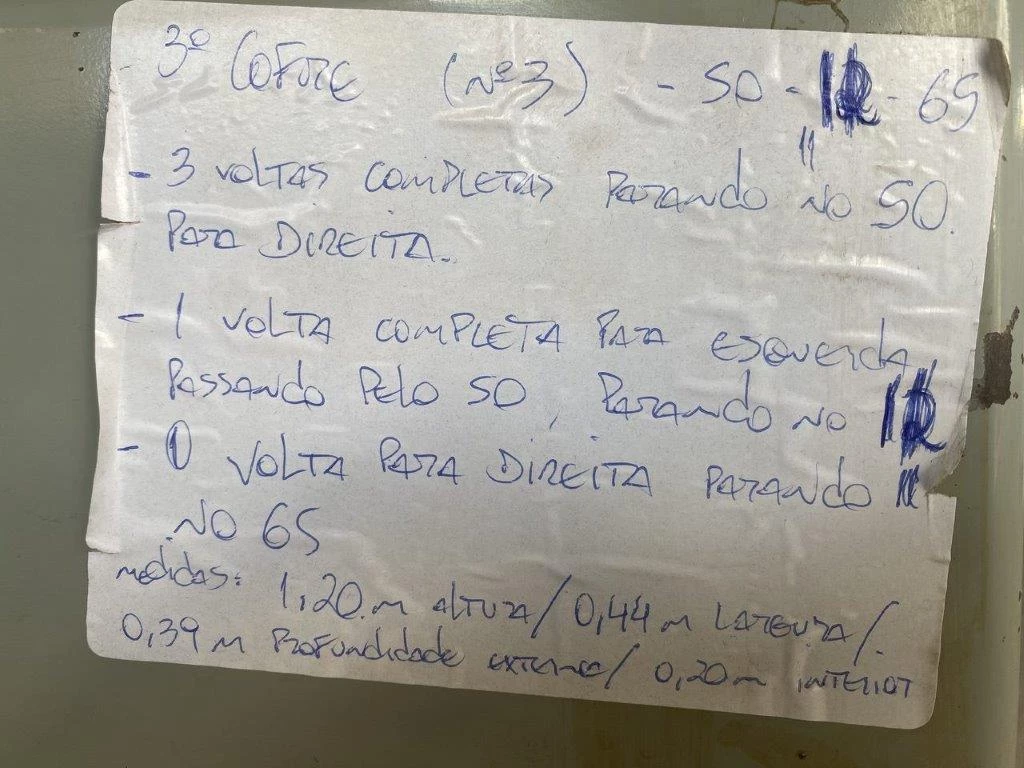 3º COFRE (Nº3) - 50 - 11 - 65
11
- 3 VOLTAS COMPLETAS PARANDO NO 50.
PARA DIREITA.
- 1 VOLTA COMPLETA PARA ESQUERDA,
PASSANDO PELO 50, PARANDO NO 11
- 0 VOLTA PARA DIREITA PARANDO 11
NO 65
medidas: 1,20 m ALTURA / 0,44 m LARGURA /
0,39 m PROFUNDIDADE EXTERNA / 0,20 m INTERIOR